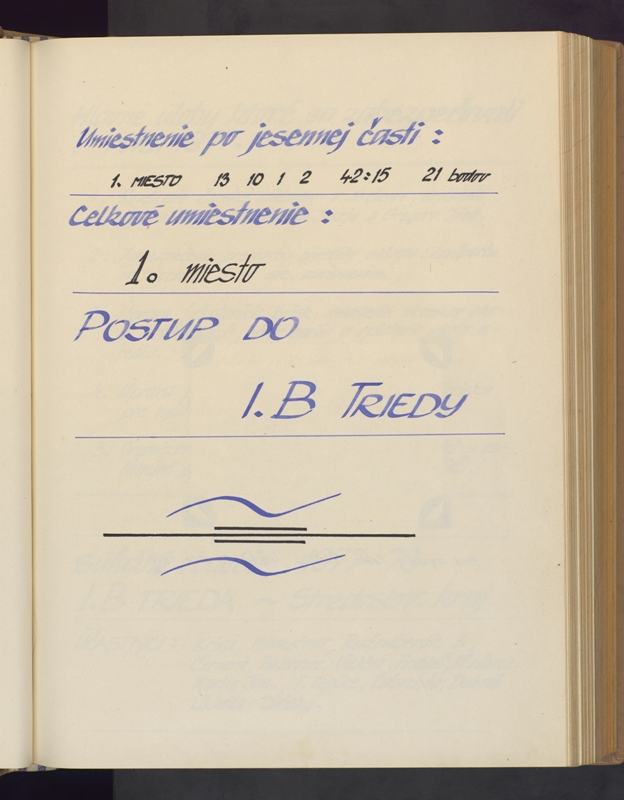 Umiestnenie po jesennej časti :
1. MIESTO 13 10 1 2 42:15 21 bodov
Celkové umiestnenie :
1. miesto
POSTUP DO
I.B TRIEDY